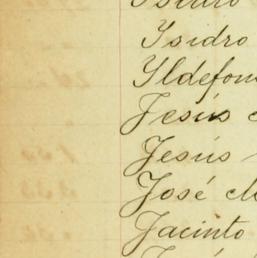 Isidro
Isidro
Yldefon
Jesús
Jesús
José M
Jacinto